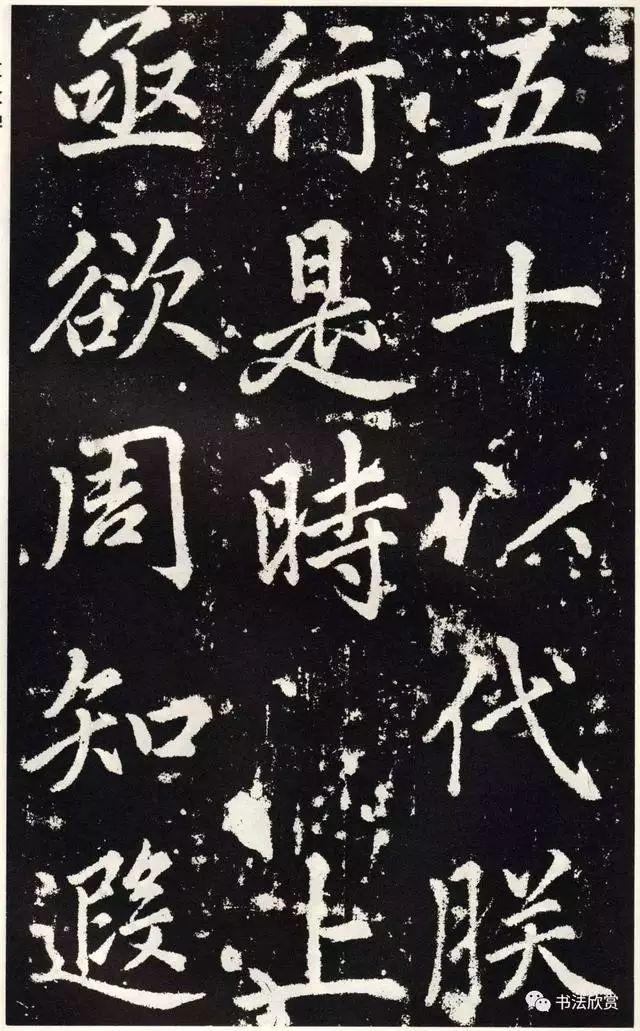 五十以代朕
行是時上
亟欲周知遐
书法欣赏